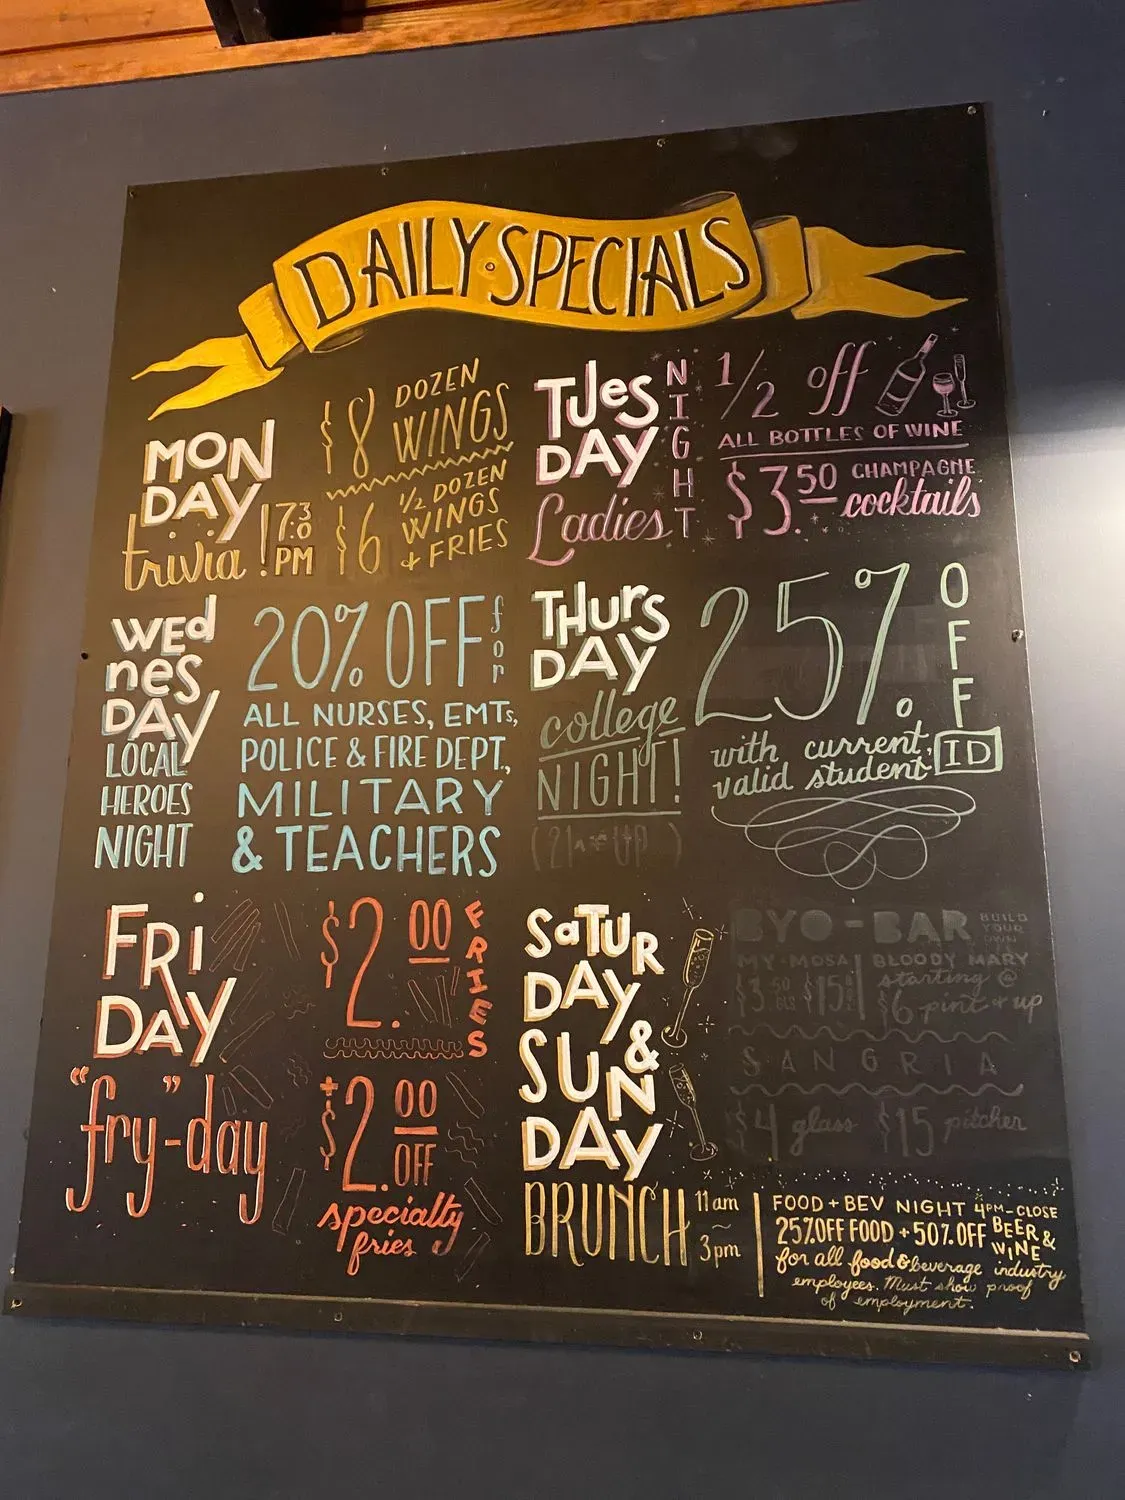 DAILY·SPECIALS
MON
DAY
trivia! 7:30
PM
$8 DOZEN
WINGS
$6 1/2 DOZEN
WINGS
+ FRIES
TUES
DAY
Ladies
NIGHT
1/2 off
ALL BOTTLES OF WINE
$3.50 CHAMPAGNE
cocktails
WEd
nes
DAY
LOCAL
HEROES
NIGHT
20% OFF for
ALL NURSES, EMTs,
POLICE & FIRE DEPT.,
MILITARY
& TEACHERS
THURS
DAY
college
NIGHT!
(21 & UP)
25% OFF
with current,
valid student ID
FRi
DAY
"fry"-day
$2.00 FRIES
+$2.00
OFF
specialty
fries
SaTUR
DAY &
SUN
DAY
BRUNCH 11am
~
3pm
BYO-BAR BUILD
YOUR
OWN
MY-MOSA
$3.50 $15
BLOODY MARY
starting @
$6 pint & up
SANGRIA
$4 glass $15 pitcher
FOOD + BEV NIGHT 4PM-CLOSE
25% OFF FOOD + 50% OFF BEER &
WINE
for all food & beverage industry
employees. Must show proof
of employment.